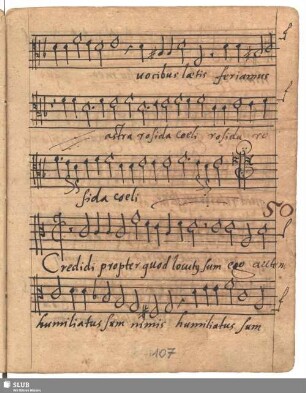 vocibus lætis feriamus
astra rosida coeli rosida
sida coeli
50
Credidi propter quod locutus sum ego autem
humiliatus sum nimis humiliatus sum
107
SLUB
Wir führen Wissen.